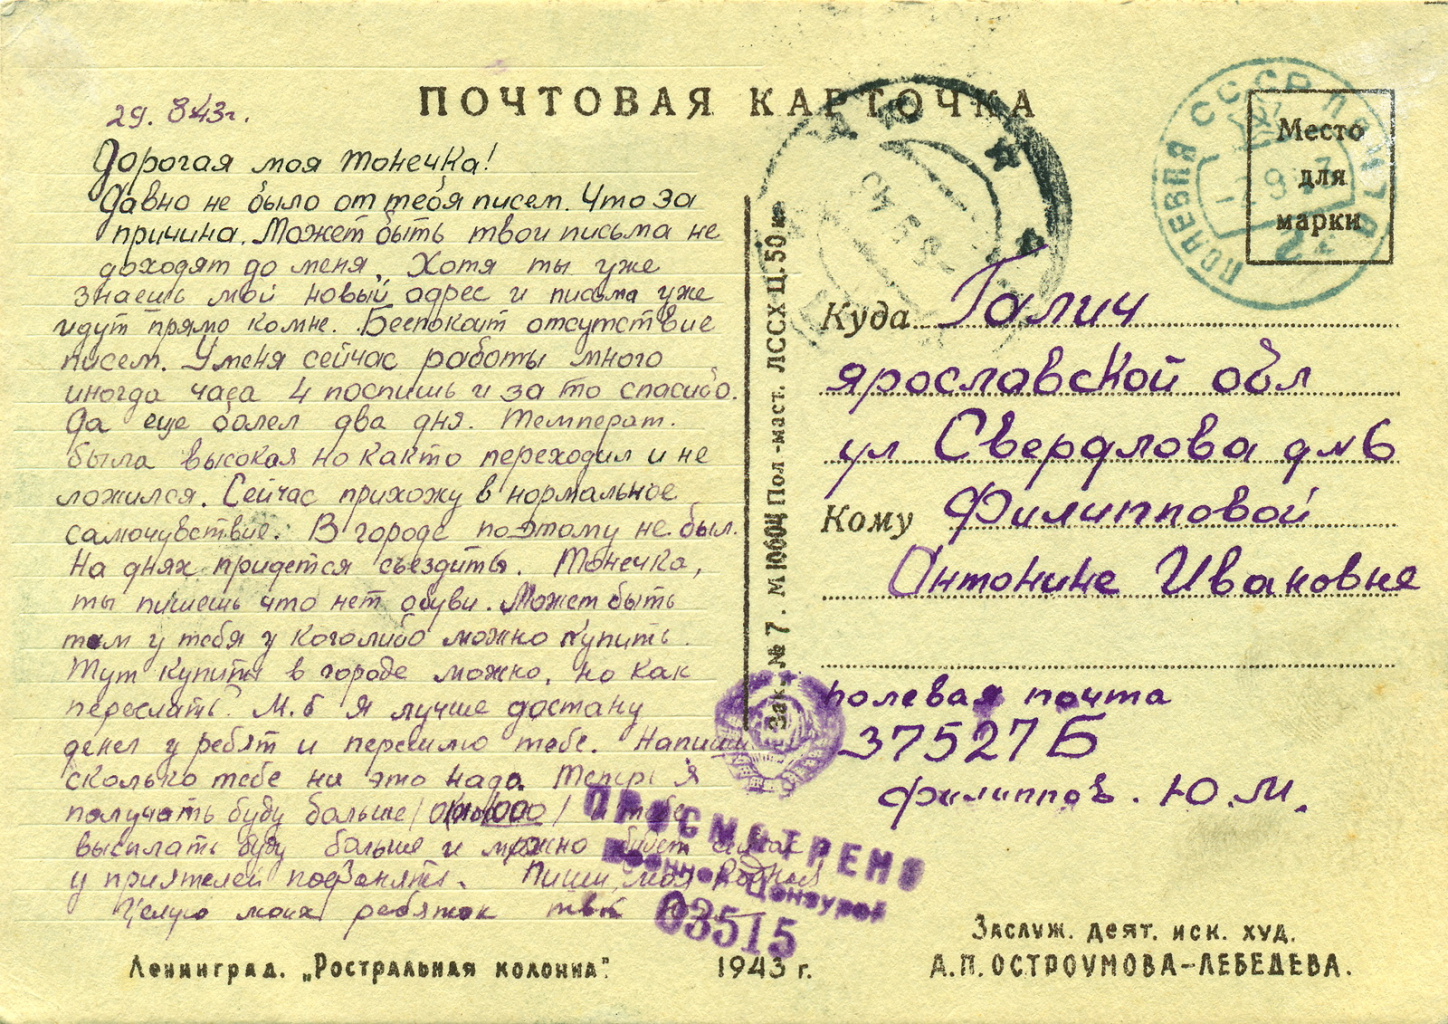 ПОЧТОВАЯ КАРТОЧКА
29. 8 43г.
Дорогая моя Тонечка!
Давно не было от тебя писем. Что за
причина. Может быть твои письма не
доходят до меня. Хотя ты уже
знаешь мой новый адрес и письма уже
идут прямо комне. Беспокоит отсутствие
писем. Уменя сейчас работы много
иногда часа 4 поспишь и за то спасибо.
Да еще болел два дня. Температ.
была высокая но както переходил и не
ложился. Сейчас прихожу в нормальное
самочувствие. В городе поэтому не был.
На днях придется съездить. Тонечка,
ты пишешь что нет обуви. Может быть
там у тебя у коголибо можно купить.
Тут купить в городе можно, но как
переслать? М.б я лучше достану
денег у ребят и перешлю тебе. Напиши
сколько тебе на это надо. Теперь я
получать буду больше тебе
высылать буду больше и можно будет сейчас
у приятелей подзанять. Пиши, моя родная
Целую моих ребяток твой Ю
Ленинград. „Ростральная колонна".
1943 г.
Зак. № 7. М 10604 Пол-маст. ЛССХ Ц. 50 к.
ПОЛЕВАЯ СССР ПОЧТА
Место
для
марки
Куда Галич
ярославской обл
ул Свердлова д №6
Кому Филипповой
Антонине Ивановне
полевая почта
37527Б
Филиппов. Ю.М.
ПРОСМОТРЕНО
Военной Цензурой
03515
Заслуж. деят. иск. худ.
А.П. ОСТРОУМОВА-ЛЕБЕДЕВА.